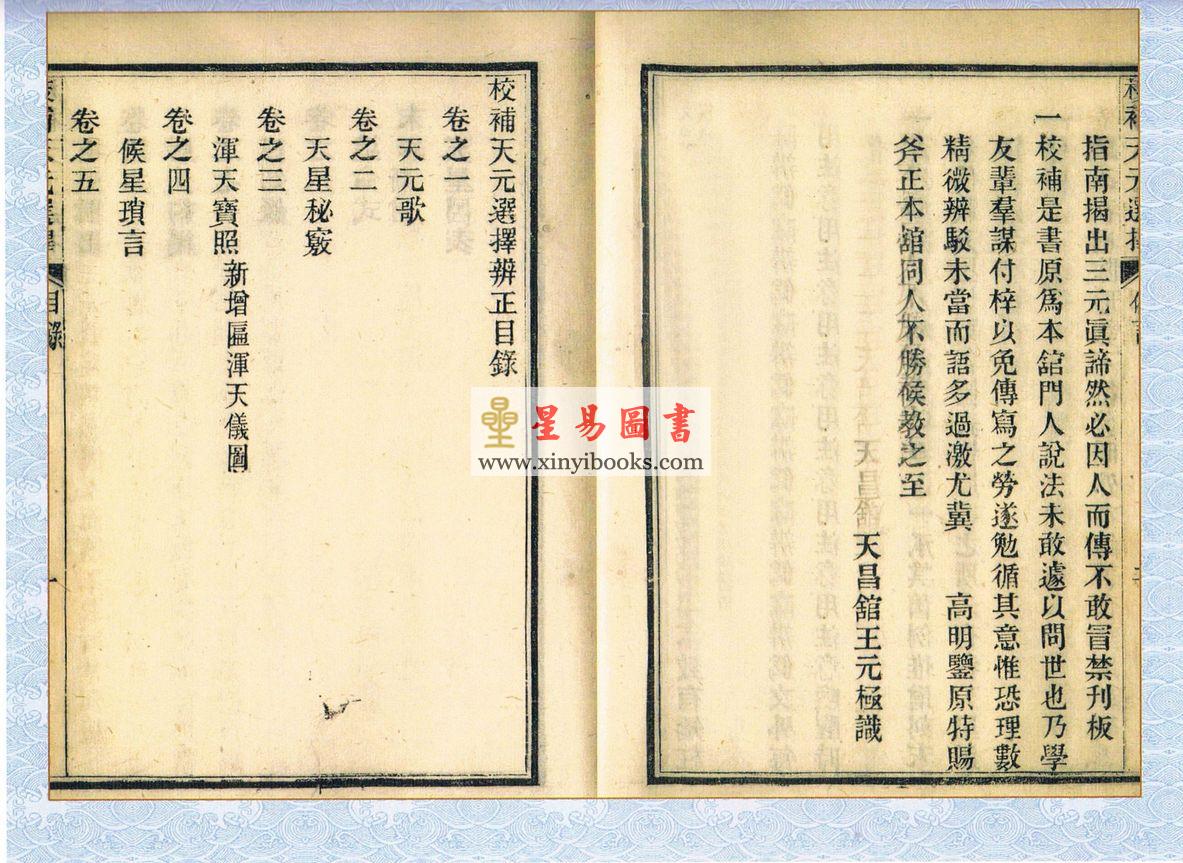 指南揭出三元眞諦然必因人而傳不敢冒禁刊板
一校補是書原爲本舘門人說法未敢遽以問世也乃學
友輩羣謀付梓以免傳寫之勞遂勉循其意惟恐理數
精微辨駁未當而語多過激尤冀　高明鑒原特賜
斧正本舘同人不勝候教之至
天昌舘王元極識
校補天元選擇辨正目錄
卷之一
天元歌
卷之二
天星秘竅
卷之三
渾天寶照 新增區渾天儀圖
卷之四
候星瑣言
卷之五
目錄
一
星易圖書
www.xinyibooks.com